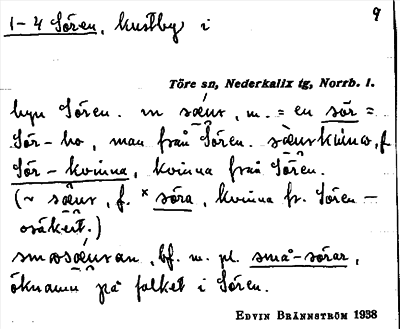 9
1-4 Sören, kustby i
Töre sn, Nederkalix tg, Norrb. l.
byn Sören. m = en sör =
Sör-bo, man från Sören. f.
Sör-kvinna, kvinna från Sören.
(~ f. * söra, kvinna fr. Sören —
osäkert.)
bf. m. pl. små-sörar,
öknamn på folket i Sören.
EDVIN BRÄNNSTRÖM 1938